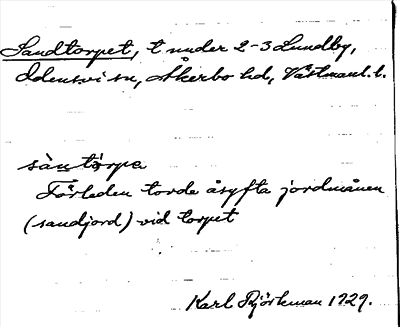 Sandtorpet, t under 2-3 Lundby,
Odensvi sn, Åkerbo hd, Västmanl. l.
sàn tårpa
Förleden torde åsyfta jordmånen
(sandjord) vid torpet
Karl Björkman 1929.